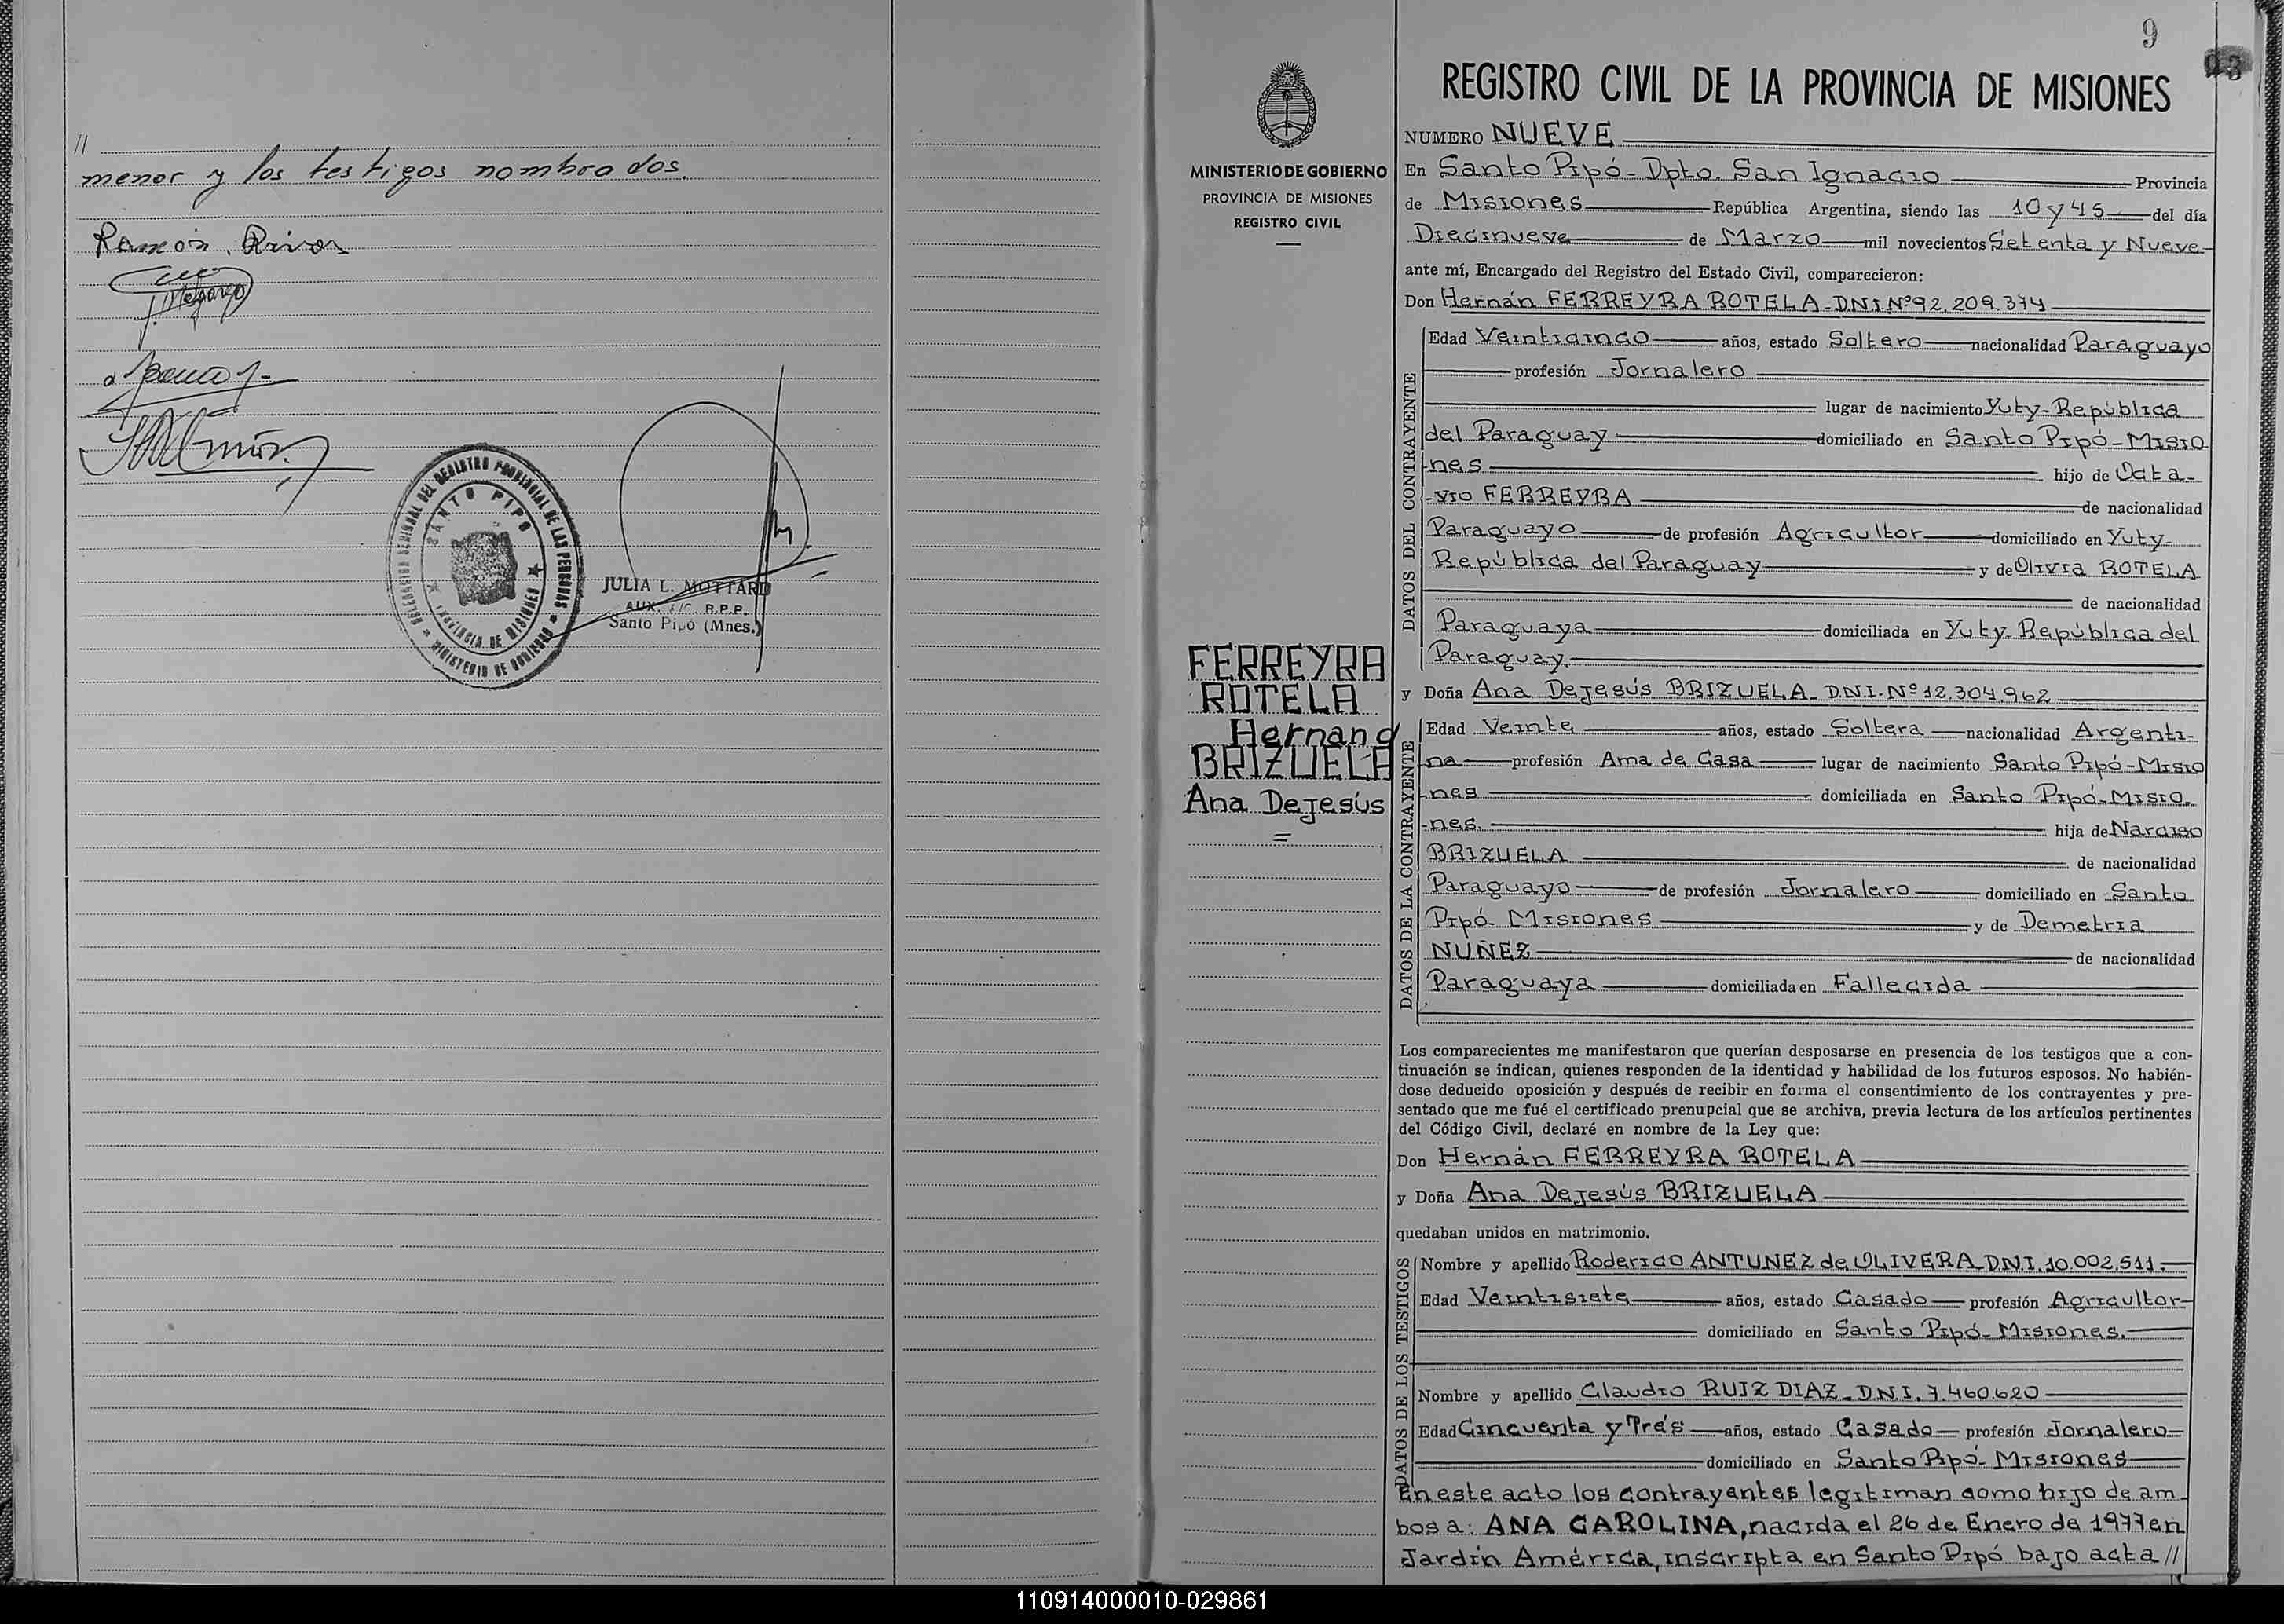 //
menor y los testigos nombrados.
Ramón Rivas
DELEGACION SECCIONAL DEL REGISTRO PROVINCIAL DE LAS PERSONAS
SANTO PIPO
PROVINCIA DE MISIONES
MINISTERIO DE GOBIERNO
JULIA L. MOTTARD
AUX. A/C R.P.P.
Santo Pipó (Mnes.)
9
MINISTERIO DE GOBIERNO
PROVINCIA DE MISIONES
REGISTRO CIVIL
FERREYRA
ROTELA
Hernan
BRIZUELA
Ana Dejesús
=
REGISTRO CIVIL DE LA PROVINCIA DE MISIONES
NUMERO NUEVE
En Santo Pipó - Dpto. San Ignacio Provincia
de Misiones República Argentina, siendo las 10 y 45 del día
Diecinueve de Marzo mil novecientos Setenta y Nueve
ante mí, Encargado del Registro del Estado Civil, comparecieron:
Don Hernán FERREYRA ROTELA - DNI Nº 92.209.374
DATOS DEL CONTRAYENTE
Edad Veinticinco años, estado Soltero nacionalidad Paraguayo
profesión Jornalero
lugar de nacimiento Yuty - República
del Paraguay domiciliado en Santo Pipó - Misio
nes hijo de Octa-
-vio FERREYRA de nacionalidad
Paraguayo de profesión Agricultor domiciliado en Yuty-
República del Paraguay y de Olivia ROTELA
de nacionalidad
Paraguaya domiciliada en Yuty - República del
Paraguay.
y Doña Ana Dejesús BRIZUELA - D.N.I. Nº 12.304.962
DATOS DE LA CONTRAYENTE
Edad Veinte años, estado Soltera nacionalidad Argenti-
na profesión Ama de Casa lugar de nacimiento Santo Pipó - Misio
nes domiciliada en Santo Pipó - Misio-
-nes. hija de Narciso
BRIZUELA de nacionalidad
Paraguayo de profesión Jornalero domiciliado en Santo
Pipó - Misiones y de Demetria
NUÑEZ de nacionalidad
Paraguaya domiciliada en Fallecida
Los comparecientes me manifestaron que querían desposarse en presencia de los testigos que a con-
tinuación se indican, quienes responden de la identidad y habilidad de los futuros esposos. No habién-
dose deducido oposición y después de recibir en forma el consentimiento de los contrayentes y pre-
sentado que me fué el certificado prenupcial que se archiva, previa lectura de los artículos pertinentes
del Código Civil, declaré en nombre de la Ley que:
Don Hernán FERREYRA ROTELA
y Doña Ana Dejesús BRIZUELA
quedaban unidos en matrimonio.
DATOS DE LOS TESTIGOS
Nombre y apellido Roderico ANTUNEZ de OLIVERA D.N.I. 10.002.511.
Edad Veintisiete años, estado Casado profesión Agricultor
domiciliado en Santo Pipó - Misiones.
Nombre y apellido Claudio RUIZ DIAZ - D.N.I. 7.460.620
Edad Cincuenta y Tres años, estado Casado profesión Jornalero
domiciliado en Santo Pipó - Misiones
En este acto los contrayentes legitiman como hijo de am-
bos a: ANA CAROLINA, nacida el 26 de Enero de 1977 en
Jardín América, inscripta en Santo Pipó bajo acta //
110914000010-029861